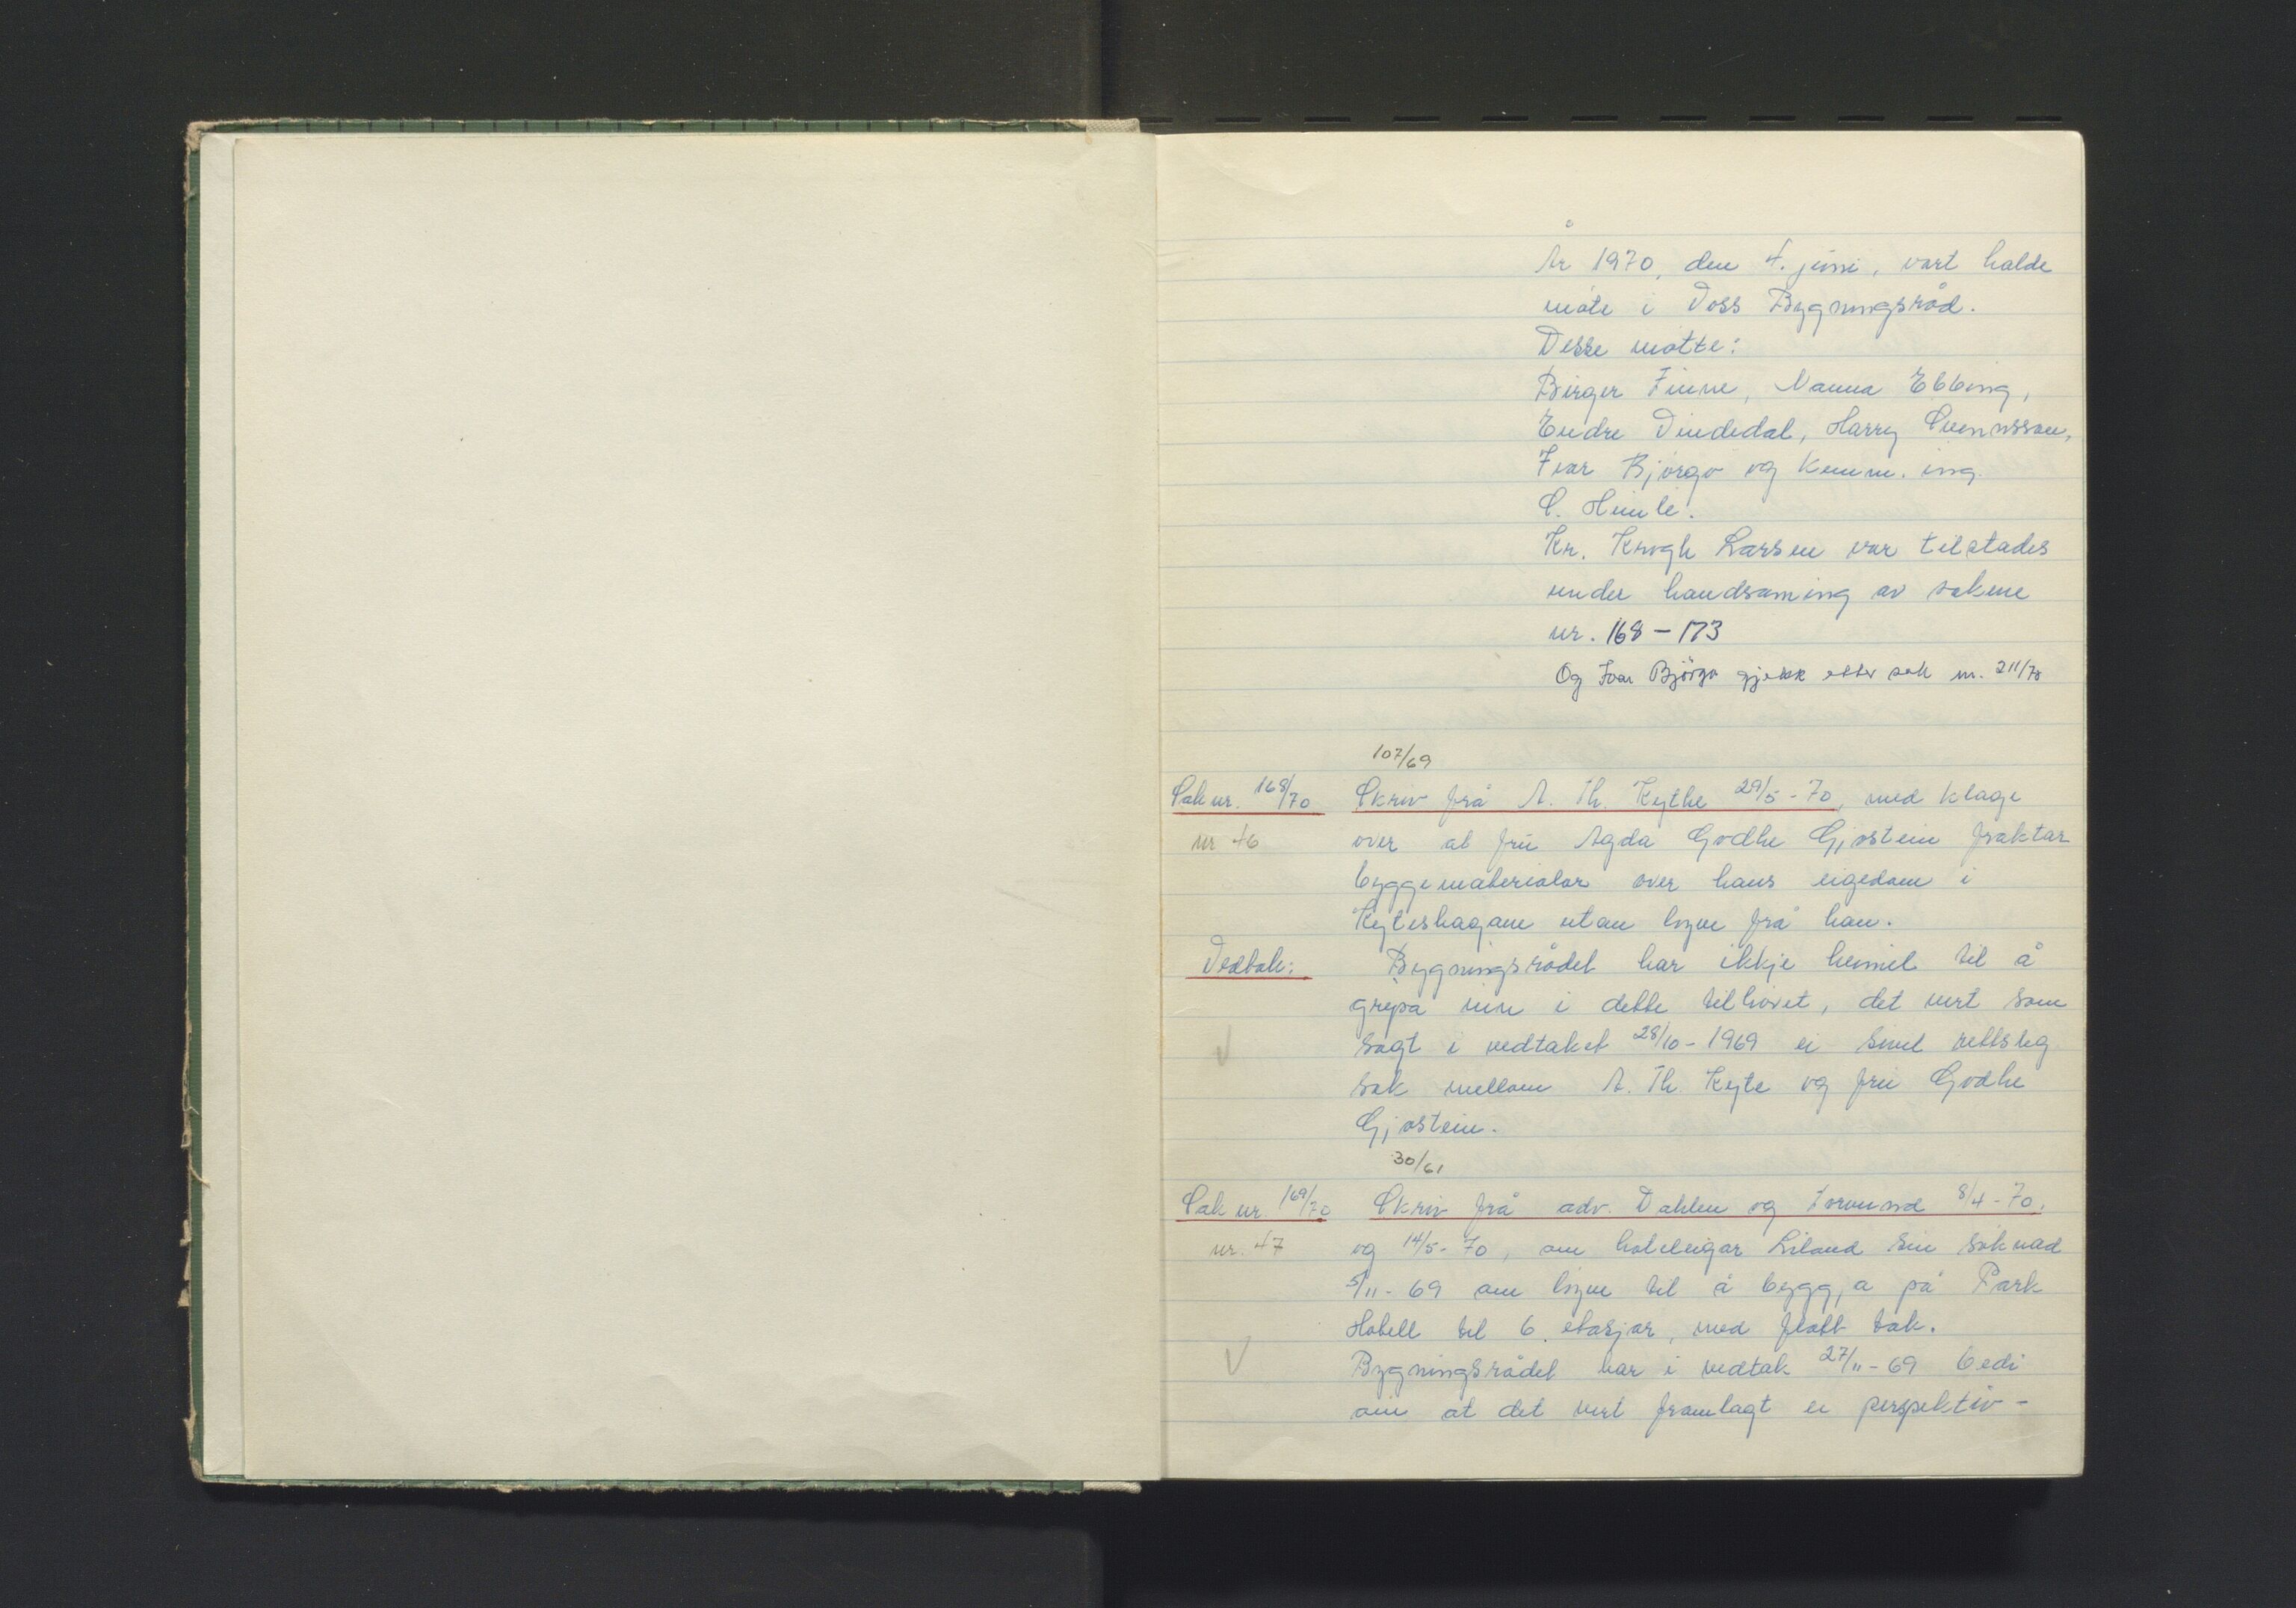 År 1970, den 4. juni, vart halde
møte i Voss Bygningsråd.
Desse møtte:
Birger Finne, Nanna Ebbing,
Endre Vindedal, Harry Svennsson,
Ivar Bjørgo og komm. ing.
S. Himle.
Kr. Krogh Larsen var tilstades
under handsaming av sakene
nr. 168 - 173
Og Ivar Björgo gjekk etter sak nr. 211/70
107/69
Sak nr. 168/70 Skriv frå A. Th. Kythe 29/5 - 70, med klage
nr 46 over at fru Agda Godhe Gjøstein fraktar
byggematerialar over hans eigedom i
Kyteshagane utan løyve frå han.
Vedtak: Bygningsrådet har ikkje heimel til å
gripa inn i dette tilhøvet, det vert som
sagt i vedtaket 28/10 - 1969 ei sivil rettsleg
sak mellom A. Th. Kyte og fru Godhe
Gjøstein.
30/61
Sak nr 169/70 Skriv frå adv. Dahlen og Torvund 8/4 - 70,
nr. 47 og 14/5 - 70, om hoteleigar Liland sin søknad
5/11 - 69 om løyve til å byggja på Park
Hotell til 6. etasjar, med flatt tak.
Bygningsrådet har i vedtak 27/11 - 69 bedi
om at det vert framlagt ei perspektiv-